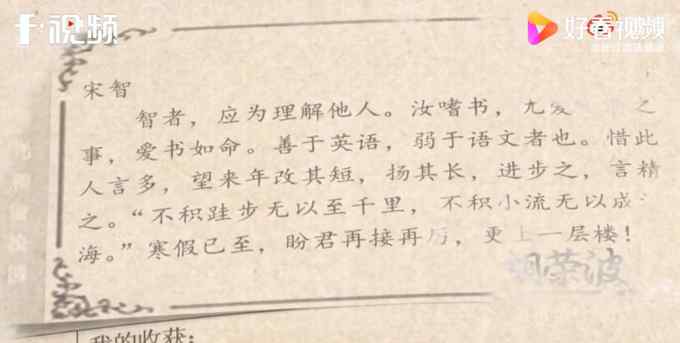 千·视频
好看视频
宋智
智者，应为理解他人。汝嗜书，尤爱之
事，爱书如命。善于英语，弱于语文者也。惜此
人言多，望来年改其短，扬其长，进步之，言精
之。“不积跬步无以至千里，不积小流无以成
海。”寒假已至，盼君再接再后，更上一层楼！
胡荣波
我的收获：